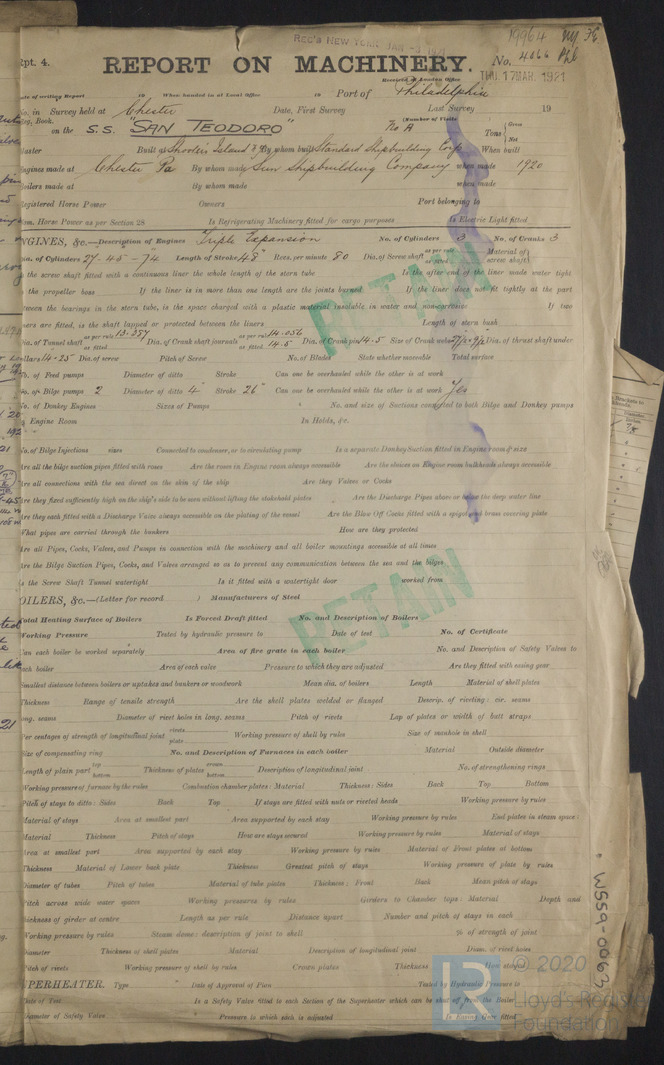 REC'D NEW YORK JAN -3 1921
19964
Rpt. 4.
REPORT ON MACHINERY.
No. 4066 Phl
Received at London Office
THU. 17 MAR. 1921
Date of writing Report 19 When handed in at Local Office 19 Port of Philadelphia
No. in Survey held at Chester Date, First Survey Last Survey 19
Reg. Book. (Number of Visits
on the S.S. "SAN TEODORO" Tons { Gross Net
Master Built at Shooters Island N.Y. By whom built Standard Shipbuilding Corp When built
Engines made at Chester Pa By whom made Sun Shipbuilding Company when made 1920
Boilers made at By whom made when made
Registered Horse Power Owners Port belonging to
Nom. Horse Power as per Section 28 Is Refrigerating Machinery fitted for cargo purposes Is Electric Light fitted
ENGINES, &c.—Description of Engines Triple Expansion No. of Cylinders 3 No. of Cranks 3
Dia. of Cylinders 27-45-74 Length of Stroke 48" Revs. per minute 80 Dia. of Screw shaft as per rule as fitted Material of screw shaft
Is the screw shaft fitted with a continuous liner the whole length of the stern tube Is the after end of the liner made water tight
in the propeller boss If the liner is in more than one length are the joints burned If the liner does not fit tightly at the part
between the bearings in the stern tube, is the space charged with a plastic material insoluble in water and non-corrosive If two
liners are fitted, is the shaft lapped or protected between the liners Length of stern bush
Dia. of Tunnel shaft as per rule 13.357 as fitted Dia. of Crank shaft journals as per rule 14.056 as fitted 14.5 Dia. of Crank pin 14.5 Size of Crank webs Dia. of thrust shaft under
collars 14.25 Dia. of screw Pitch of Screw No. of Blades State whether moveable Total surface
No. of Feed pumps Diameter of ditto Stroke Can one be overhauled while the other is at work
No. of Bilge pumps 2 Diameter of ditto 4" Stroke 26" Can one be overhauled while the other is at work Yes
No. of Donkey Engines Sizes of Pumps No. and size of Suctions connected to both Bilge and Donkey pumps
In Engine Room In Holds, &c.
No. of Bilge Injections sizes Connected to condenser, or to circulating pump Is a separate Donkey Suction fitted in Engine room & size
Are all the bilge suction pipes fitted with roses Are the roses in Engine room always accessible Are the sluices on Engine room bulkheads always accessible
Are all connections with the sea direct on the skin of the ship Are they Valves or Cocks
Are they fixed sufficiently high on the ship's side to be seen without lifting the stokehold plates Are the Discharge Pipes above or below the deep water line
Are they each fitted with a Discharge Valve always accessible on the plating of the vessel Are the Blow Off Cocks fitted with a spigot and brass covering plate
What pipes are carried through the bunkers How are they protected
Are all Pipes, Cocks, Valves, and Pumps in connection with the machinery and all boiler mountings accessible at all times
Are the Bilge Suction Pipes, Cocks, and Valves arranged so as to prevent any communication between the sea and the bilges
Is the Screw Shaft Tunnel watertight Is it fitted with a watertight door worked from
BOILERS, &c.—(Letter for record ) Manufacturers of Steel
Total Heating Surface of Boilers Is Forced Draft fitted No. and Description of Boilers
Working Pressure Tested by hydraulic pressure to Date of test No. of Certificate
Can each boiler be worked separately Area of fire grate in each boiler No. and Description of Safety Valves to
each boiler Area of each valve Pressure to which they are adjusted Are they fitted with easing gear
Smallest distance between boilers or uptakes and bunkers or woodwork Mean dia. of boilers Length Material of shell plates
Thickness Range of tensile strength Are the shell plates welded or flanged Descrip. of riveting: cir. seams
long. seams Diameter of rivet holes in long. seams Pitch of rivets Lap of plates or width of butt straps
Per centages of strength of longitudinal joint rivets plate Working pressure of shell by rules Size of manhole in shell
Size of compensating ring No. and Description of Furnaces in each boiler Material Outside diameter
Length of plain part top bottom Thickness of plates crown bottom Description of longitudinal joint No. of strengthening rings
Working pressure of furnace by the rules Combustion chamber plates: Material Thickness: Sides Back Top Bottom
Pitch of stays to ditto: Sides Back Top If stays are fitted with nuts or riveted heads Working pressure by rules
Material of stays Area at smallest part Area supported by each stay Working pressure by rules End plates in steam space:
Material Thickness Pitch of stays How are stays secured Working pressure by rules Material of stays
Area at smallest part Area supported by each stay Working pressure by rules Material of Front plates at bottom
Thickness Material of Lower back plate Thickness Greatest pitch of stays Working pressure of plate by rules
Diameter of tubes Pitch of tubes Material of tube plates Thickness: Front Back Mean pitch of stays
Pitch across wide water spaces Working pressures by rules Girders to Chamber tops: Material Depth and
thickness of girder at centre Length as per rule Distance apart Number and pitch of stays in each
Working pressure by rules Steam dome: description of joint to shell % of strength of joint
Diameter Thickness of shell plates Material Description of longitudinal joint Diam. of rivet holes
Pitch of rivets Working pressure of shell by rules Crown plates Thickness How stayed
SUPERHEATER. Type Date of Approval of Plan Tested by Hydraulic Pressure to
Date of Test Is a Safety Valve fitted to each Section of the Superheater which can be shut off from the Boiler
Diameter of Safety Valve Pressure to which each is adjusted Is Easing Gear fitted
RETAIN
RETAIN
W559-0063
© 2020
Lloyd's Register
Foundation